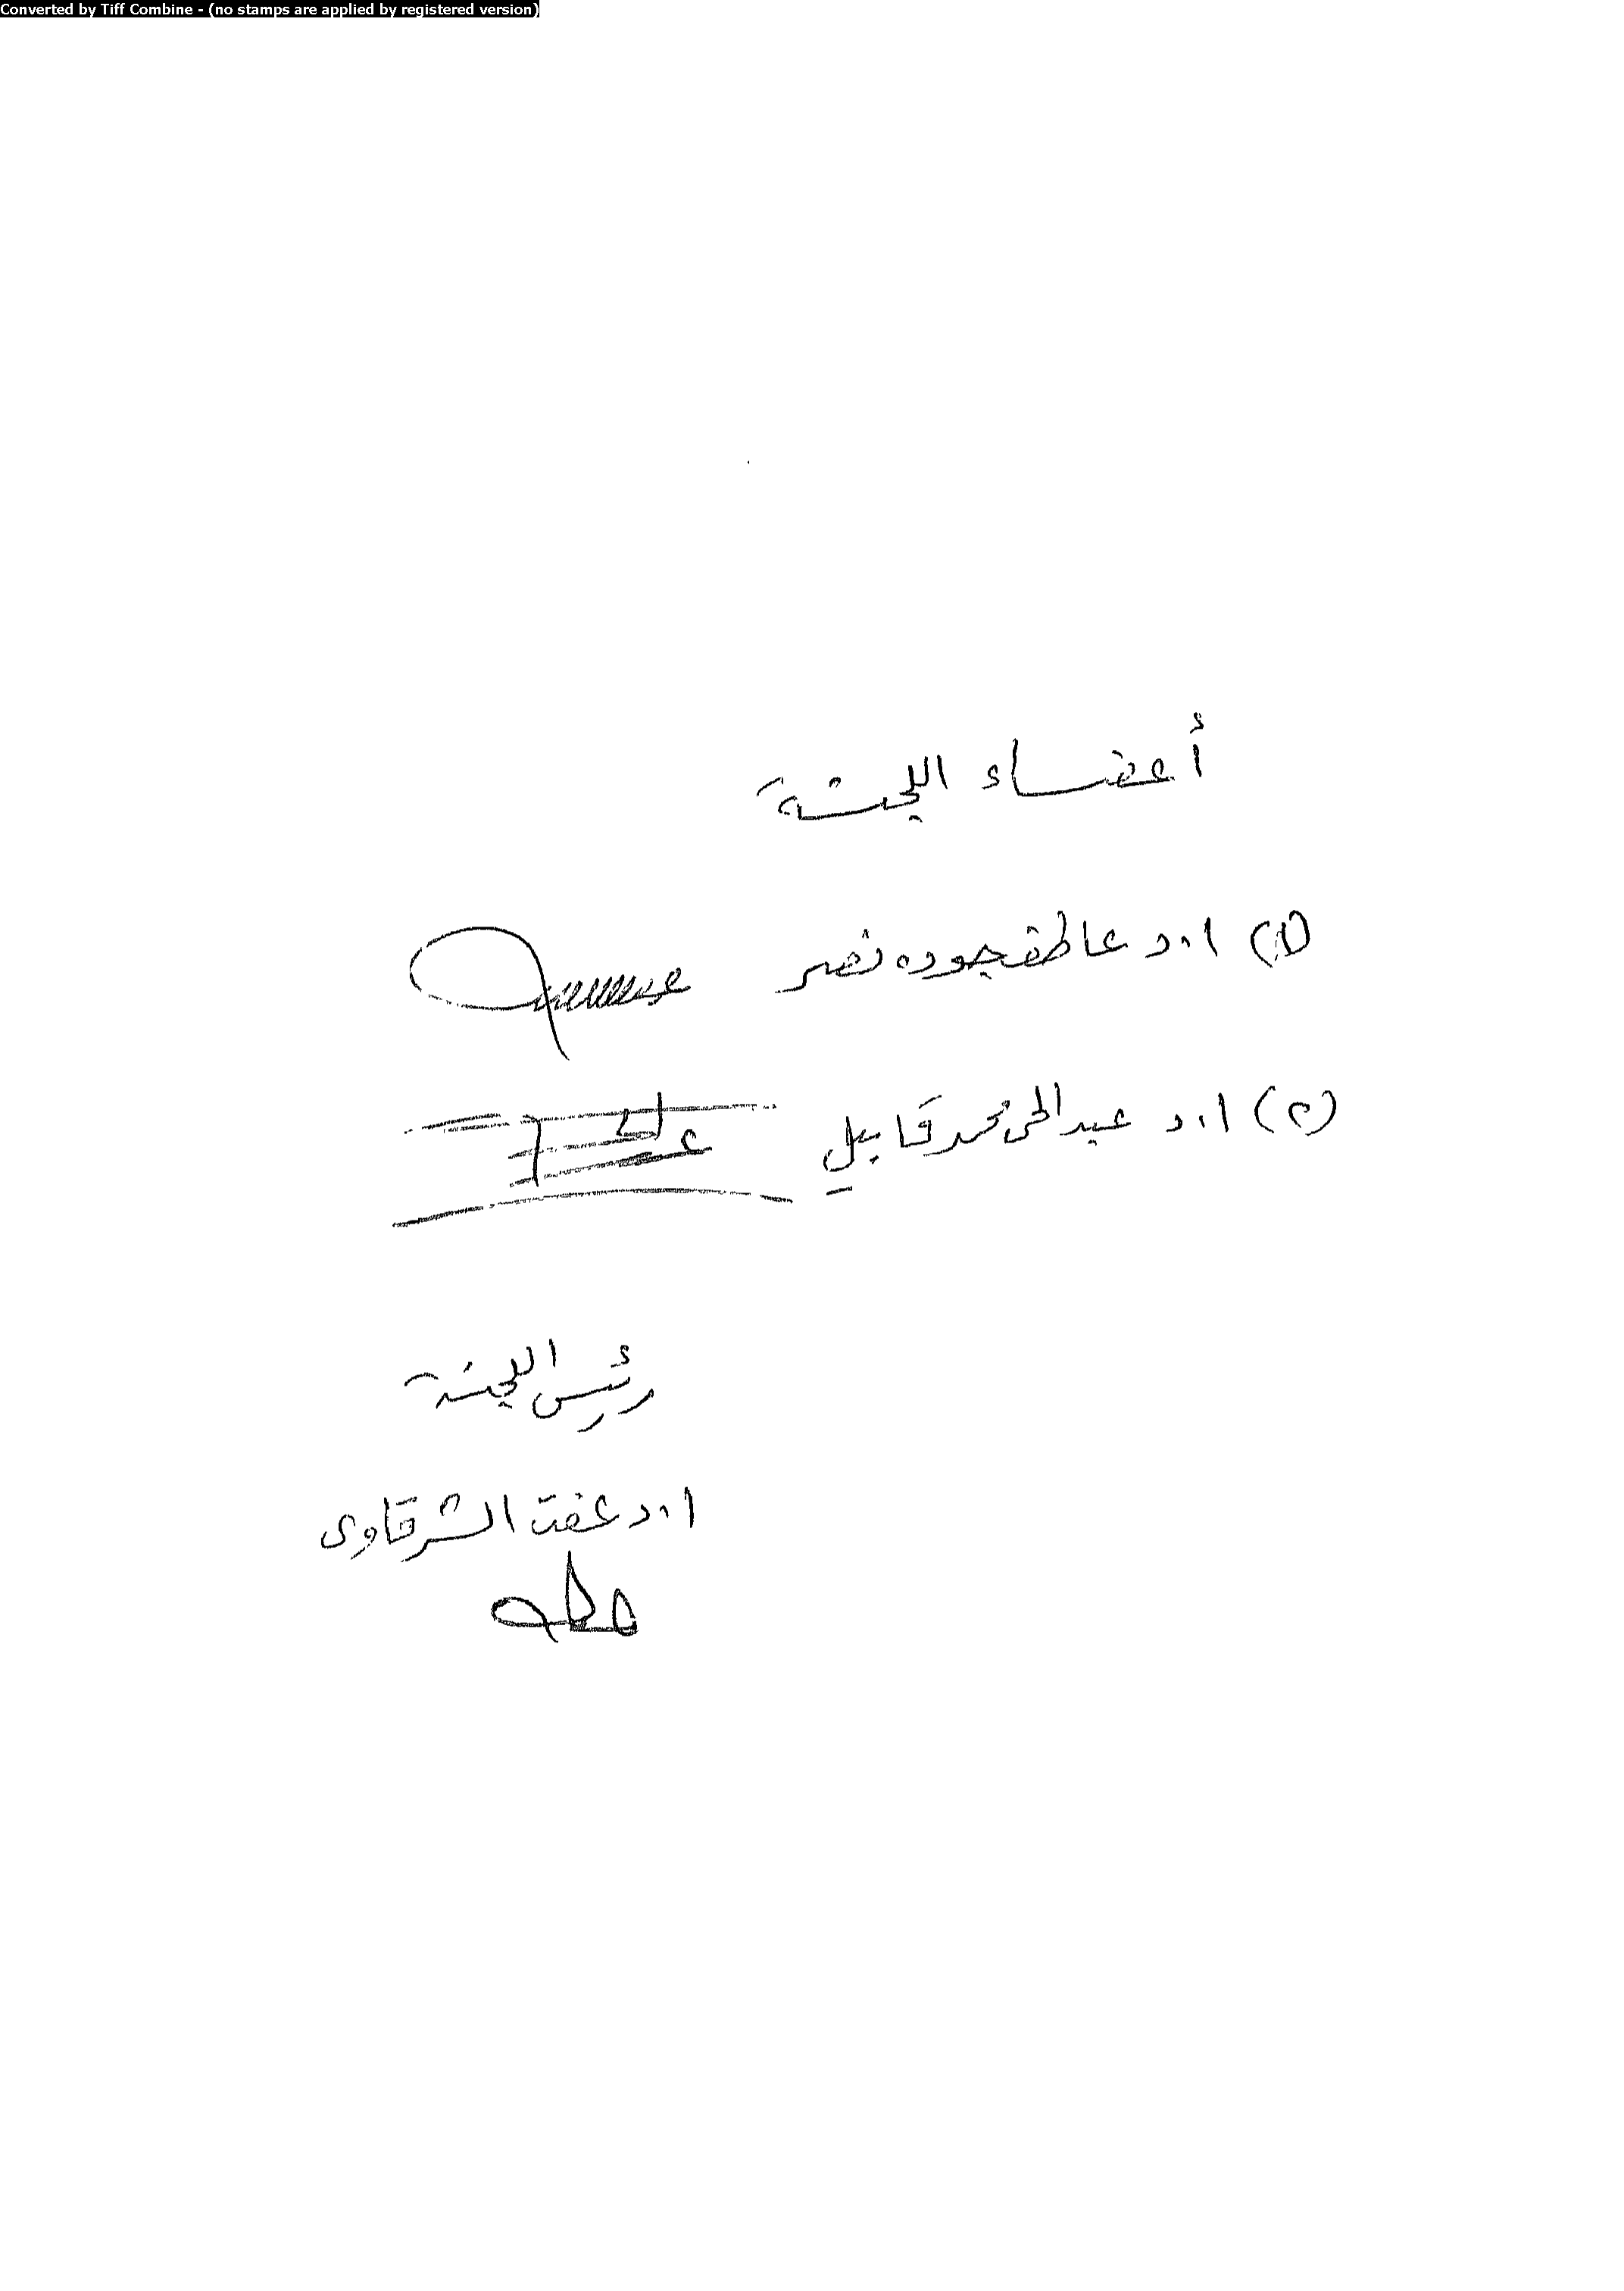 Converted by Tiff Combine - (no stamps are applied by registered version)
أعضاء اللجنة
(١) ا.د عاطف جوده نصر
(٢) ا.د عبدالحى محمد قابيل
رئيس اللجنة
ا.د عفت الشرقاوى